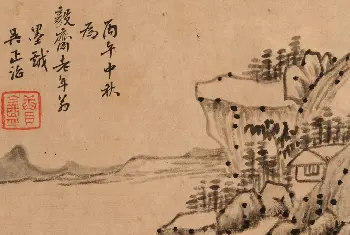 丙午中秋
為
毅齋老年翁
墨戲
吳正治